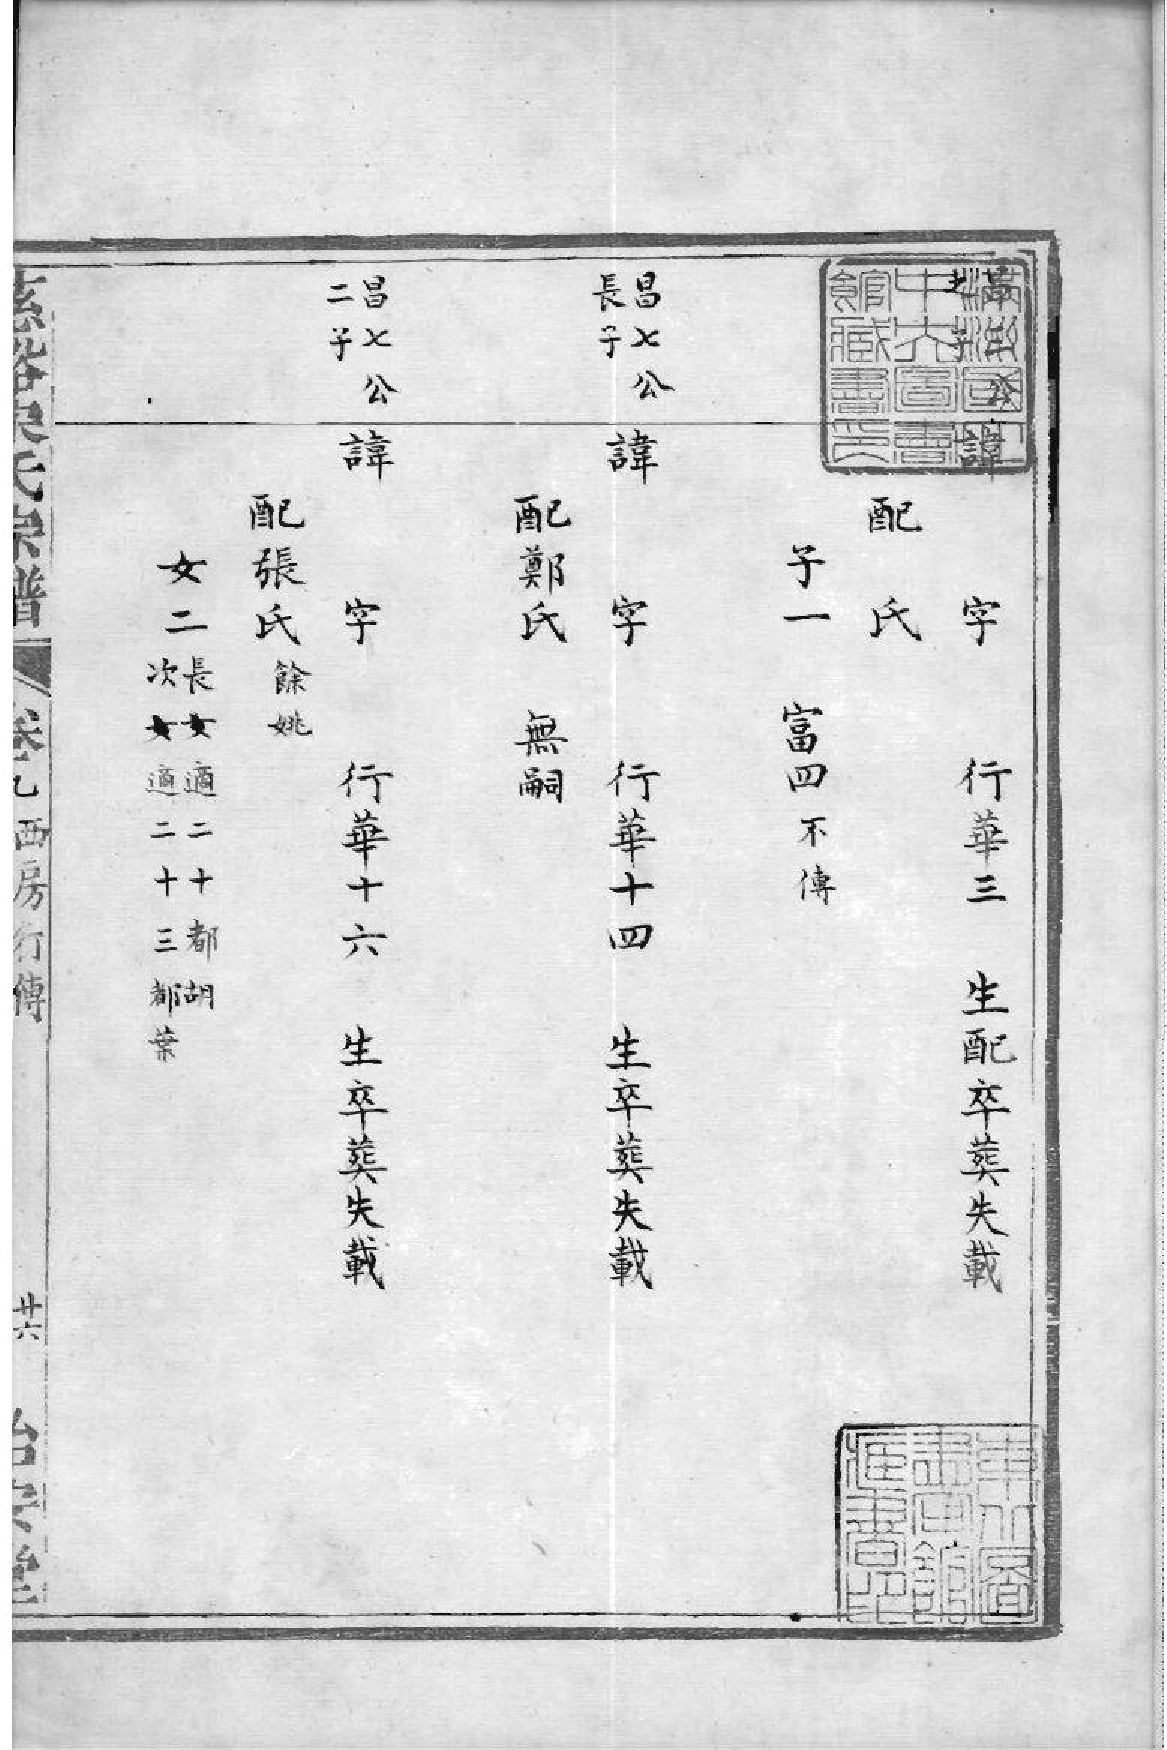 諱　字　行華三　生配卒葬失載
配　氏
子一　富四不傳
昌七公
長子
諱　字　行華十四　生卒葬失載
配鄭氏　無嗣
昌七公
二子
諱　字　行華十六　生卒葬失載
配張氏餘姚
女二
長女適二十都胡
次女適二十三都葉
氏宗譜　卷七　西房行傳　廿六